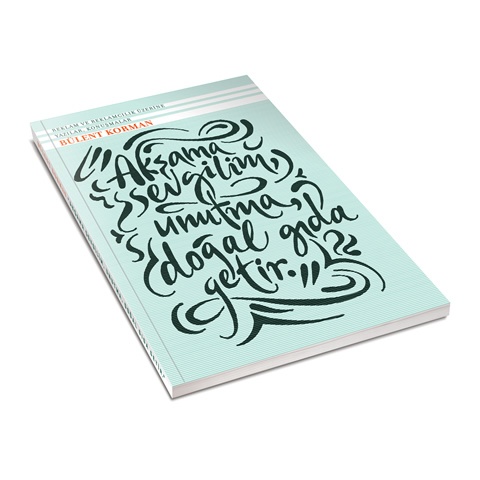 REKLAM VE REKLAMCILIK ÜZERİNE
YAZILAR, KONUŞMALAR
BÜLENT KORMAN
"Akşama
sevgilim,
unutma,
doğal gıda
getir."